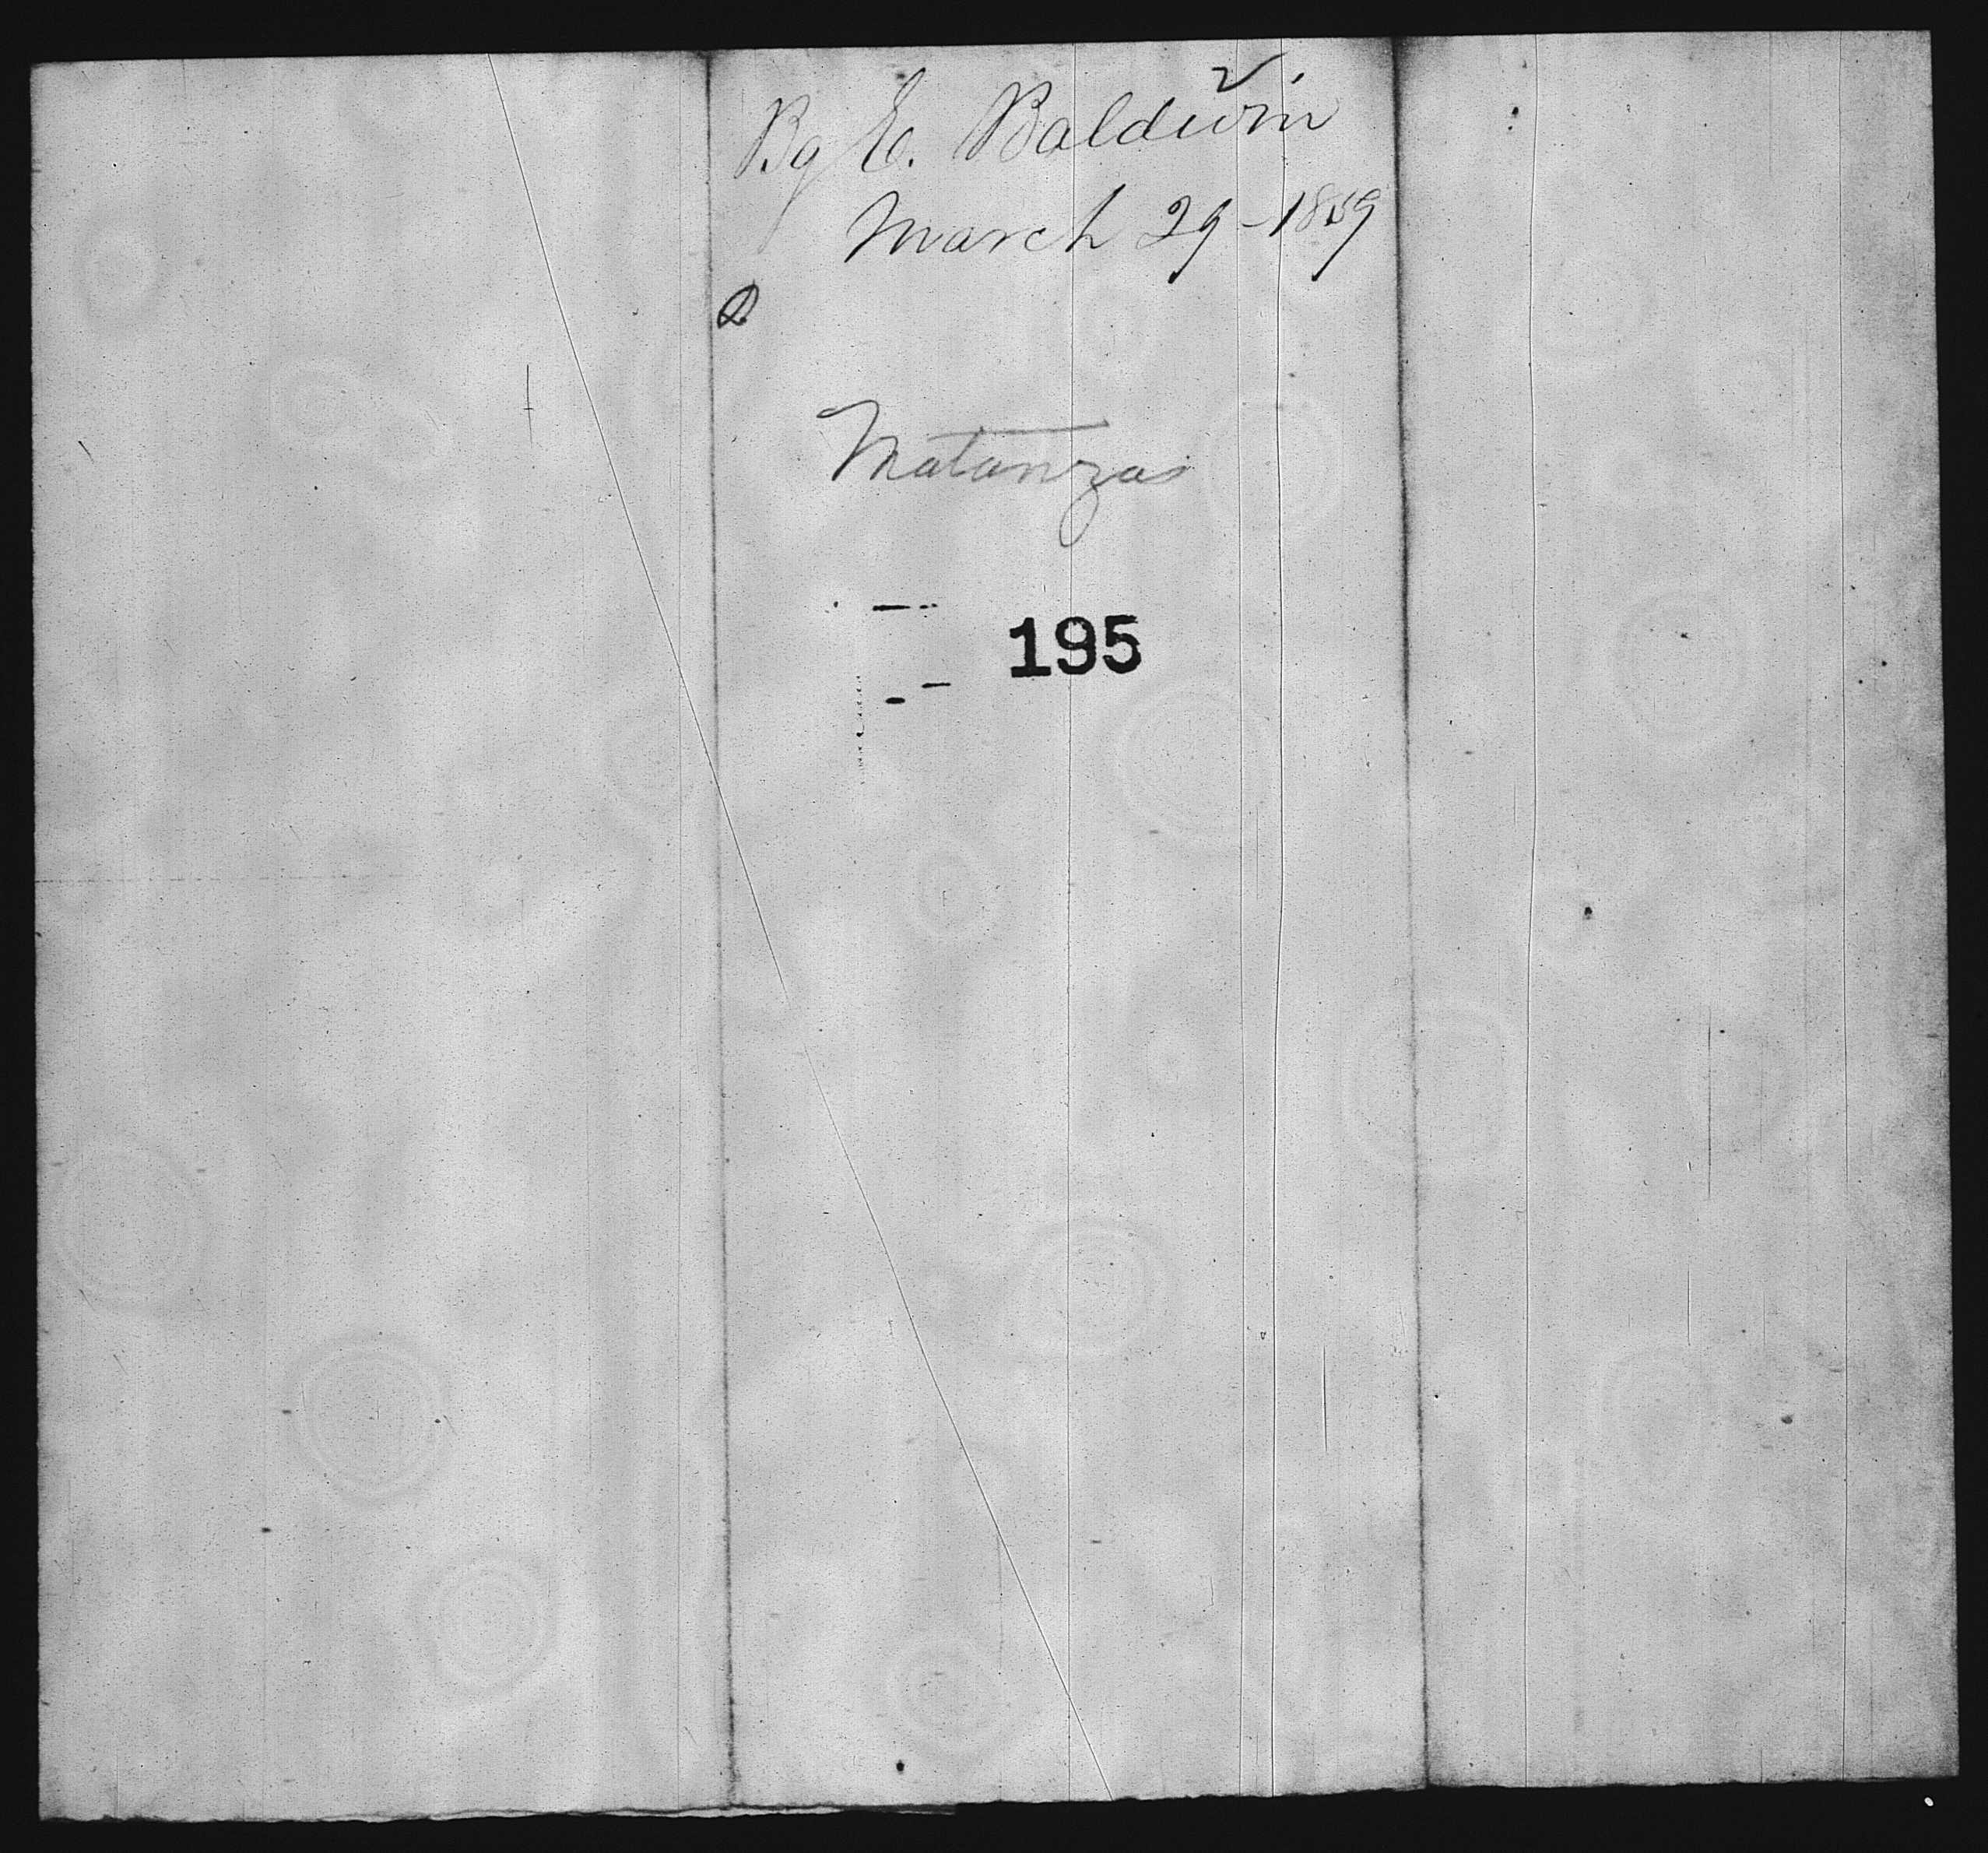 Bg E. Baldwin
March 29 - 1859
Matanzas
195